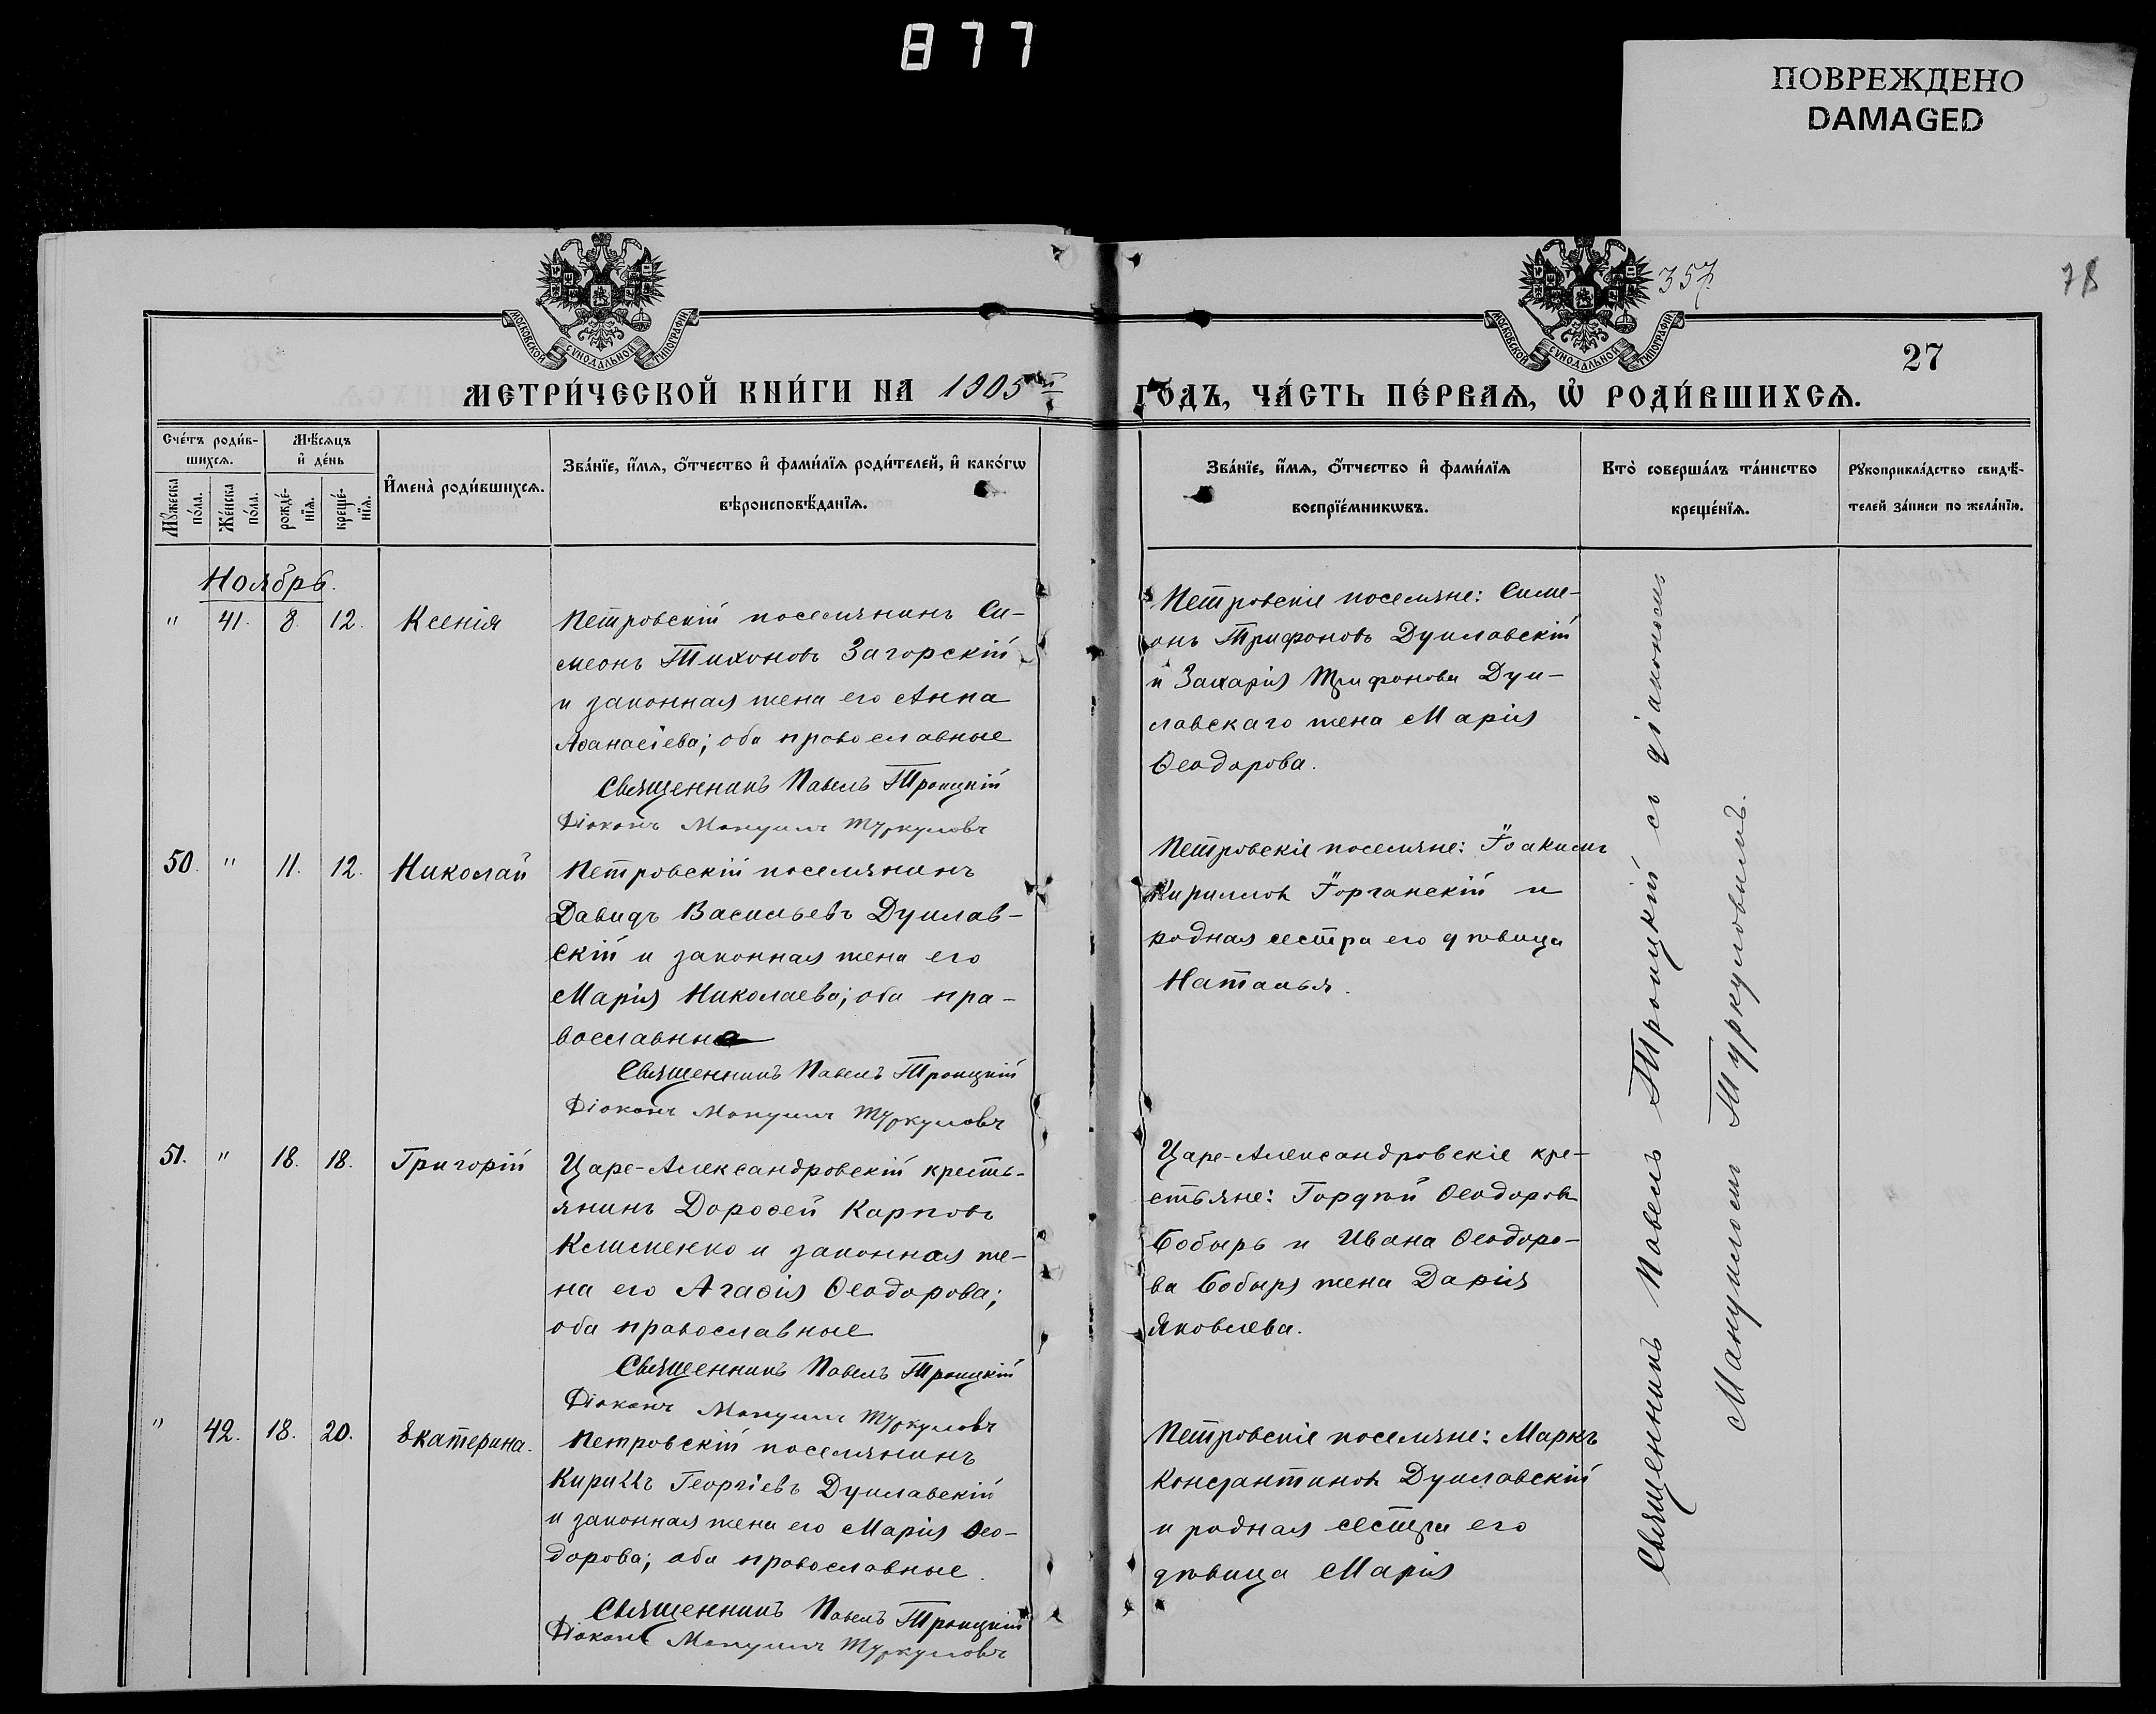 877
ПОВРЕЖДЕНО
DAMAGED
357
78
27
МОСКОВСКОЙ СѴНОДАЛЬНОЙ ТИПОГРАФІИ
МОСКОВСКОЙ СѴНОДАЛЬНОЙ ТИПОГРАФІИ
МЕТРИ́ЧЕСКОЙ КНИ́ГИ НА 1905ый
ГО́ДЪ, ЧА́СТЬ ПЕ́РВАѦ, Ѽ РОДИ́ВШИХСѦ.
Сче́тъ роди́в-
шихсѧ.
Мѣ́сѧцъ
и҆ де́нь
Мꙋ́жеска
по́ла.
Же́нска
по́ла.
рожде́-
нїѧ.
креще́-
нїѧ.
И҆мена̀ роди́вшихсѧ.
Зва́нїе, и҆́мѧ, ѻ҆́тчество и҆ фами́лїѧ роди́телей, и҆ како́гѡ
вѣроисповѣ́данїѧ.
Зва́нїе, и҆́мѧ, ѻ҆́тчество и҆ фами́лїѧ
воспрїе́мникѡвъ.
Кто̀ соверша́лъ та́инство
креще́нїѧ.
Рꙋкоприкла́дство свидѣ́-
телей за́писи по жела́нїю.
Ноябрь.
" 41. 8. 12. Ксенія
Петровскій поселянинъ Си-
меонъ Тихоновъ Загорскій
и законная жена его Анна
Аѳанасіева; оба православные
Священникъ Павелъ Троицкій
Діаконъ Мануилъ Туркуловъ
Петровскіе поселяне: Симе-
онъ Трифоновъ Дуиловскій
и Захарія Трифонова Дуи-
ловскаго жена Марія
Ѳеодорова.
50. " 11. 12. Николай
Петровскій поселянинъ
Давидъ Васильевъ Дуилов-
скій и законная жена его
Марія Николаева; оба пра-
вославны
Священникъ Павелъ Троицкій
Діаконъ Мануилъ Туркуловъ
Петровскіе поселяне: Іоакимъ
Кирилловъ Горганскій и
родная сестра его дѣвица
Наталья.
51. " 18. 18. Григорій
Царе-Александровскій кресть-
янинъ Дороѳей Карповъ
Клименко и законная же-
на его Агаѳія Ѳеодорова;
оба православные
Священникъ Павелъ Троицкій
Діаконъ Мануилъ Туркуловъ
Царе-Александровскіе кре-
стьяне: Гордѣй Ѳеодоровъ
Бобырь и Ивана Ѳеодоро-
ва Бобыря жена Дарія
Яковлева.
" 42. 18. 20. Екатерина.
Петровскій поселянинъ
Кириллъ Георгіевъ Дуиловскій
и законная жена его Марія Ѳео-
дорова; оба православные.
Священникъ Павелъ Троицкій
Діаконъ Мануилъ Туркуловъ
Петровскіе поселяне: Маркъ
Константиновъ Дуиловскій
и родная сестра его
дѣвица Марія
Священникъ Павелъ Троицкій съ діакономъ
Мануиломъ Туркуловымъ.